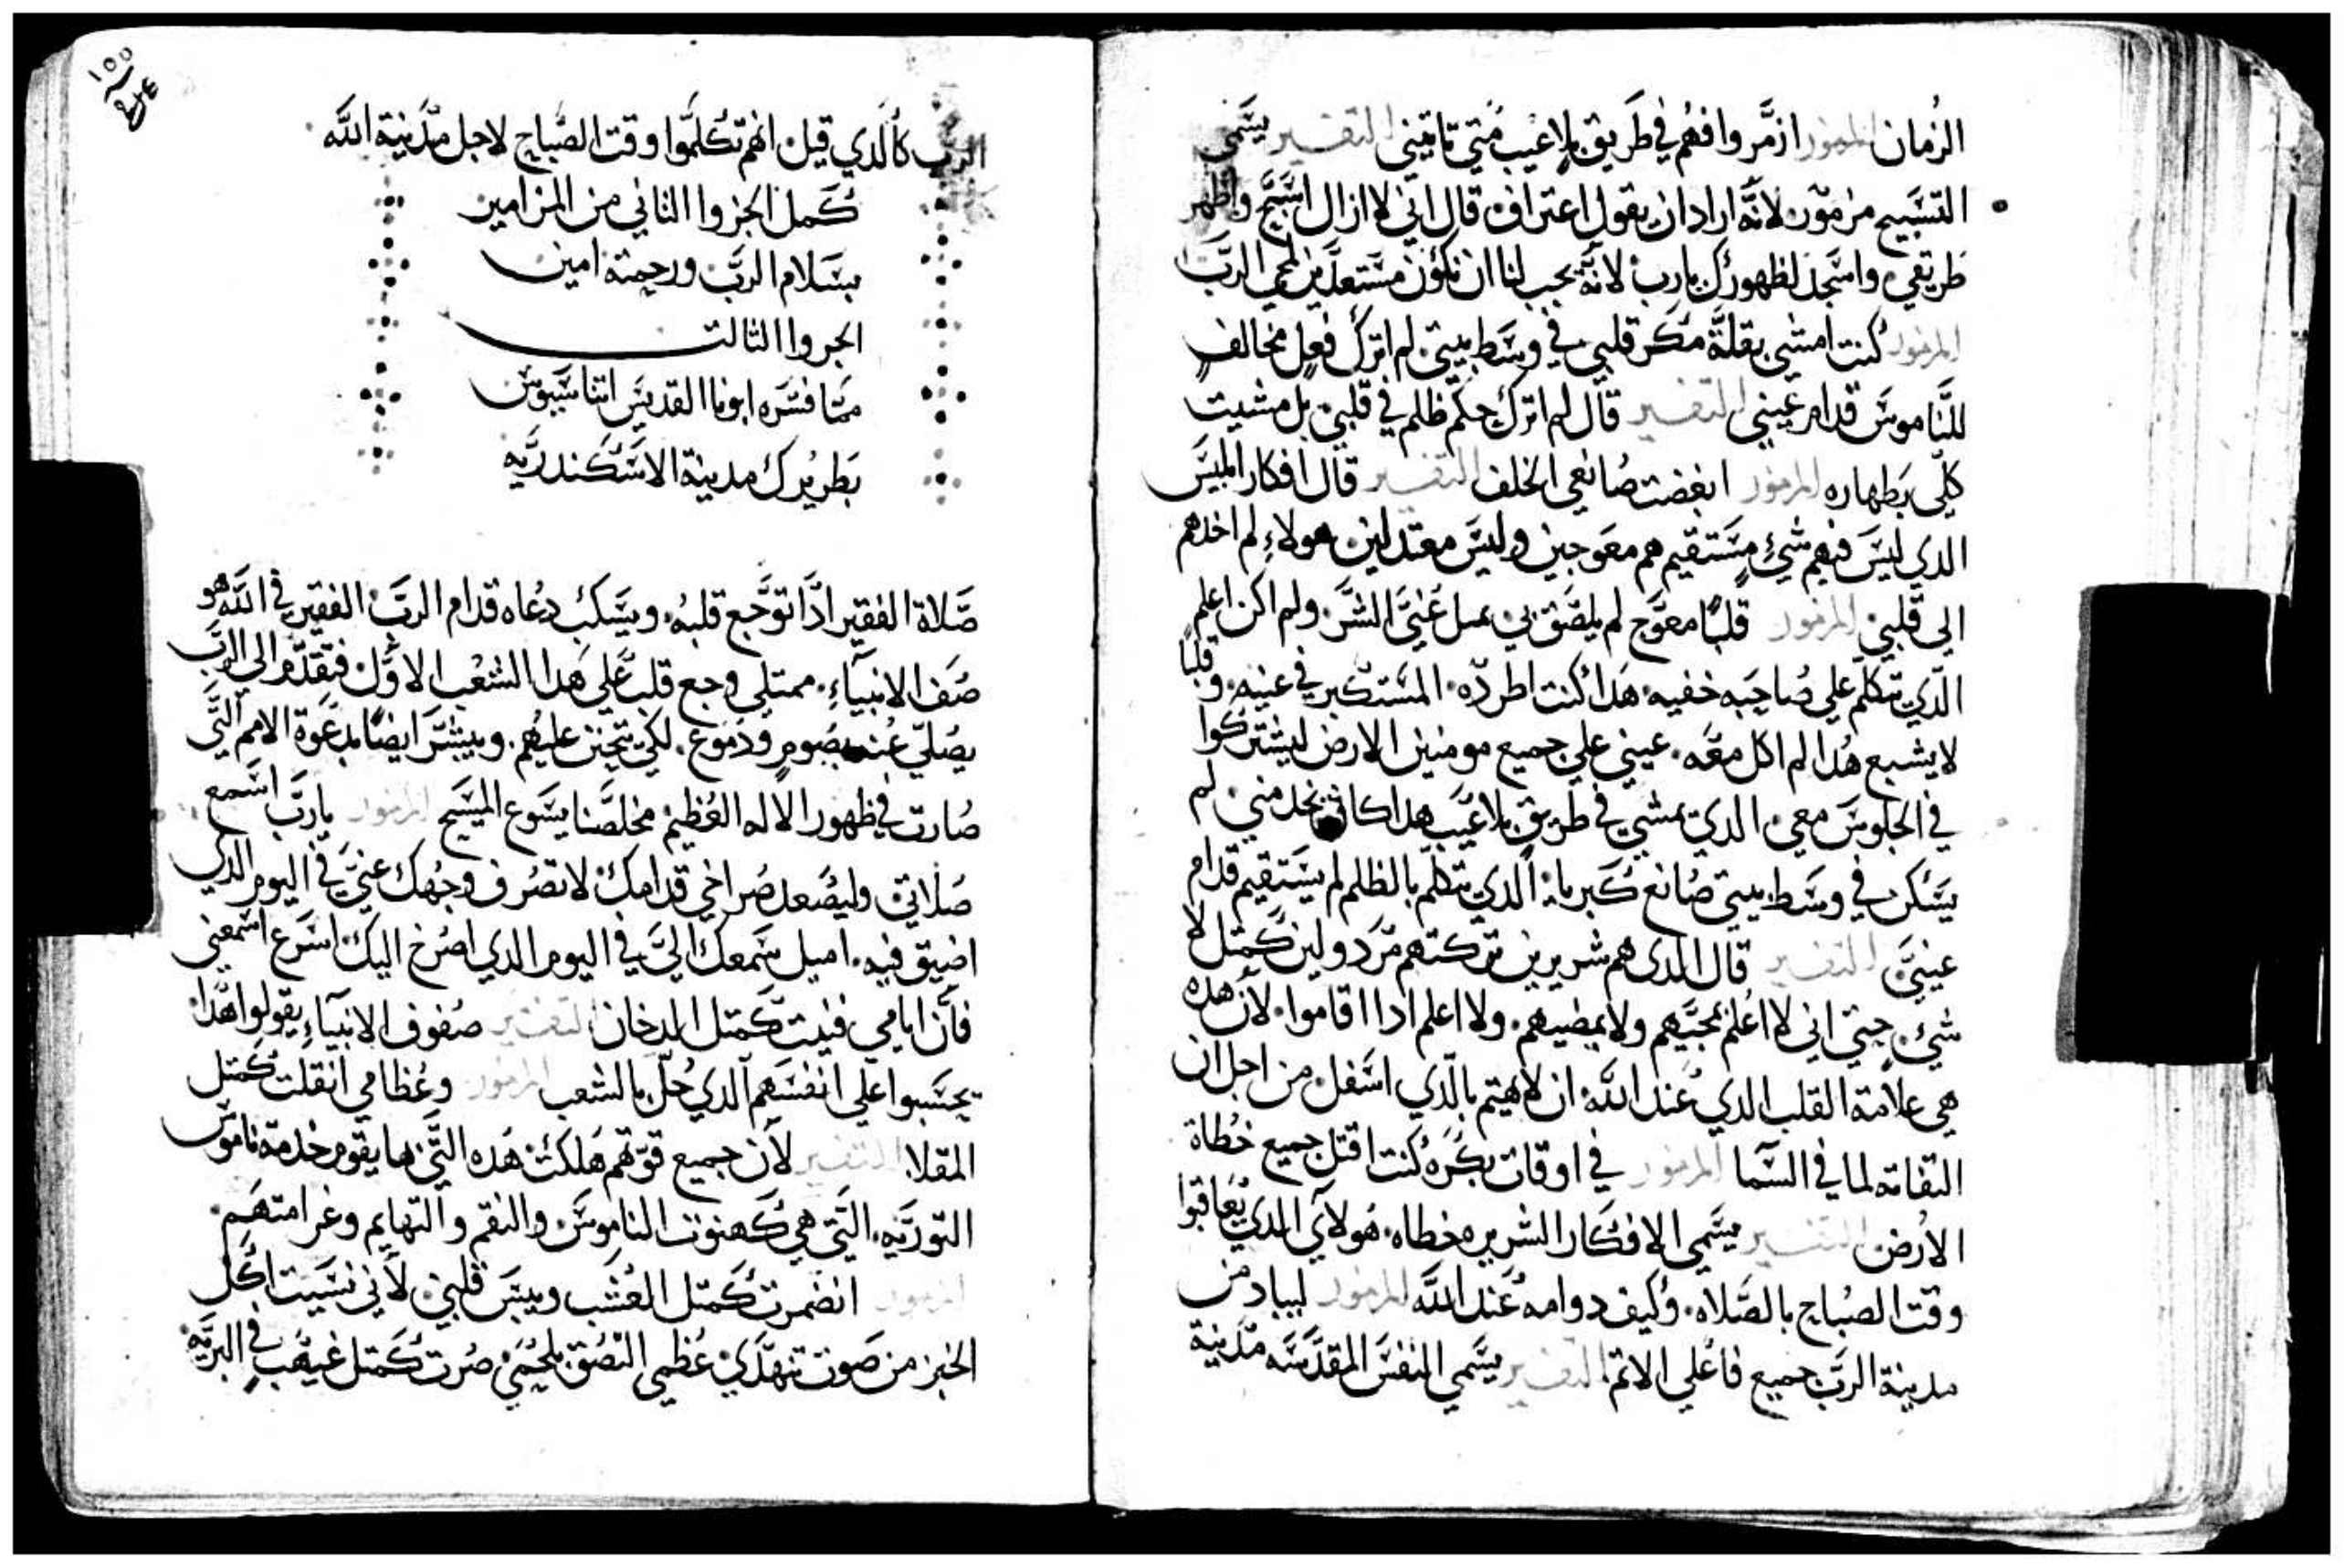 الزمان المزمور ازمّر وافهم في طريق بلا عيب متي تاتيني التفسير يسَمي
التسَبيح مزمور لانّه اراد ان يقول اعتراف قال اني لا ازال اسَبّح واظهر
طريقي واسَجد لظهورك يارب لانّه يجب لنا ان نكون مسَتعدّين لمجي الربّ
المزمور كنت امشي بقلّة مكر قلبي في وسَط بيتي لم اترك فعل مخالف
للنّاموسَ قدام عيني التفسير قال لم اترك حكم ظلم في قلبي بل مشيت
كلّي بطهاره المزمور ابغضت صانعي الخلف التفسير قال افكار ابليسَ
الدي ليسَ فيهم شيء مسَتقيم هم معوجين وليسَ معتدلين هولاء لم اخدهم
الي قلبي المزمور قلبًا معوّج لم يلصَق بي عمل عنيَّ الشرَّ ولم اكن اعلم
الّدي تكلّم علي صاحبه خفيه هدا كنت اطردّه المسَتكبر في عينيه وقلبًا
لا يشبع هدا لم اكل معه عيني علي جميع مومنين الارض ليشتركوا
في الجلوسَ معي الدي يمشي في طريق بلا عيب هدا كان يخدمني لم
يسَكن في وسَط بيتي صانع كبريا الدي يتكلم بالظلم لم يسَتقيم قدام
عينيَّ التفسير قال الدي هم شريرين تركتهم مردولين كمتل لا
شيء حتي اني لا اعلم بمجيّهم ولا بمضيهم ولا اعلم ادا اقاموا لان هده
هي علامة القلب الدي عند الله ان لا يهتم بالّدي اسَفل من اجل ان
التفاته لما في السَّما المزمور في اوقات بكره كنت اقتل جميع خطاة
الارض التفسير يسَمي الافكار الشريره خطاه هولاي الدي يعاقبوا
وقت الصباح بالصّلاه وكيف دوامه عند اللّه المزمور ليباد من
مدينة الربّ جميع فاعلي الاتم التفسير يسَمي النفسَ المقدّسَه مدينة
الربّ كالّدي قيل انهم تكلّموا وقت الصّباح لاجل مدينة اللّه
كمل الجزوا التاني من المزامير
بسَلام الربّ ورحمته امين
الجزوا التالت
ممّا فسّره ابونا القديسَ اتناسَيوسَ
بطريرك مدينة الاسَكندريّه
صَلاة الفقير ادَّا توَجَّع قلبه ويسَكب دعاه قدام الربّ الفقير في اللّه هو
صَف الانبيآء ممتلي وجع قلب عَلي هدا الشعب الاوّل فتقدّم الي الربّ
يصُلّي عنه بصُوم ودموع لكي يتحنن عليهم ويبشر ايضًا بدعوة الامم التَّي
صارت في ظهور الاله العظيم مخلصّنا يسَوع المسَيح المزمور ياربّ اسَمع
صلاتي وليصَعد صراخي قدامك لا تصرف وجهك عنيَّ في اليوم الدي
اضيق فيه اميل سَمعك اليَّ في اليوم الدي اصرخ اليك اسَرع اسَمعني
فان ايامي فنيت كمتل الدخان التفسير صفوف الانبيآء يقولوا هدا
يحسَبوا علي انفسَهم الدي حلّ بالشعب المزمور وعظامي انقلت كمتل
المقلا التفسير لان جميع قوّتهم هلكت هده التَّي بها يقوم خدمة ناموسَ
التوريّه التَّي هي كهنوت الناموسَ والنقم والتهايم وغرامتهم
المزمور انضمرت كمتل العشب ويبسَ قلبي لاني نسَيت اكل
الخبز من صَوت تنهّدي عظمي التصُق بلحمي صرت كمتل غيهب في البريّه